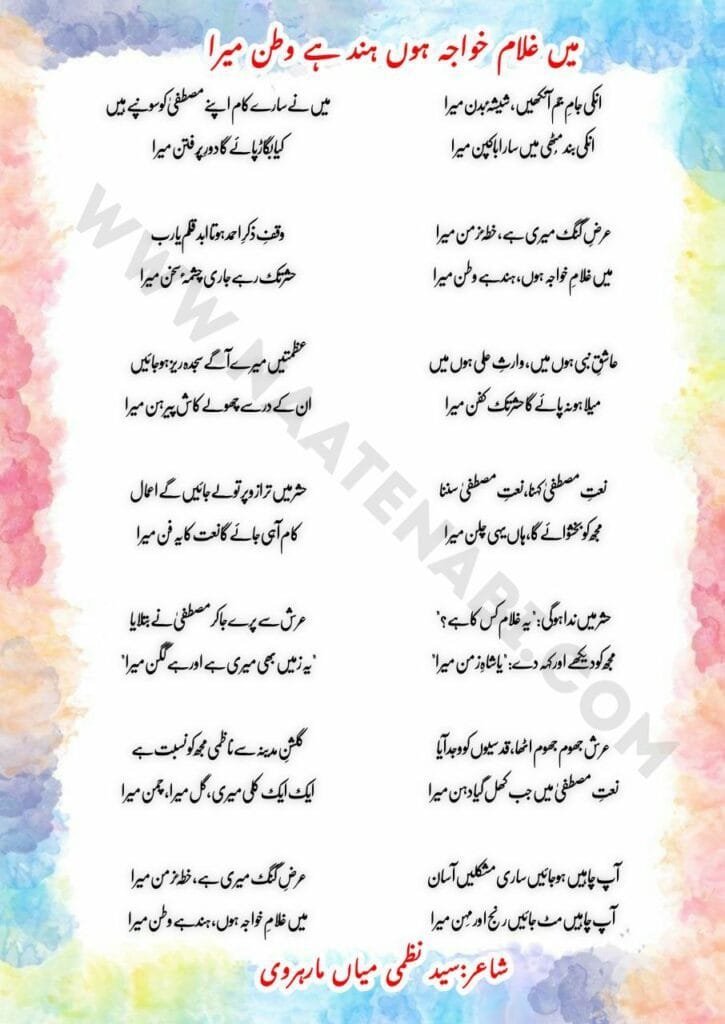 میں غلام خواجہ ہوں ہند ہے وطن میرا
انکی جامِ جم آنکھیں، شیشۂ بدن میرا
انکی بند مٹھی میں سارا بانکپن میرا
میں نے سارے کام اپنے مصطفیٰ کو سونپے ہیں
کیا بگاڑ پائے گا دورِ پر فتن میرا
عرضِ گنگ میری ہے، خطۂ زمن میرا
میں غلامِ خواجہ ہوں، ہند ہے وطن میرا
وقفِ ذکرِ احمد ہو تا ابد قلم یارب
حشر تک رہے جاری چشمۂ سخن میرا
عاشقِ نبی ہوں میں، وارثِ علی ہوں میں
میلا ہو نہ پائے گا حشر تک کفن میرا
عظمتیں میرے آگے سجدہ ریز ہو جائیں
ان کے در سے چھولے کاش پیرہن میرا
نعتِ مصطفیٰ کہنا، نعتِ مصطفیٰ سننا
مجھ کو بخشوائے گا، ہاں یہی چلن میرا
حشر میں ترازو پر تولے جائیں گے اعمال
کام آہی جائے گا نعت کا یہ فن میرا
حشر میں ندا ہوگی: "یہ غلام کس کا ہے؟"
مجھ کو دیکھے اور کہہ دے: "یا شاہِ زمن میرا"
عرش سے پرے جاکر مصطفیٰ نے بتلایا
"یہ زمیں بھی میری ہے اور ہے گگن میرا"
عرش جھوم جھوم اٹھا، قدسیوں کو وجد آیا
نعتِ مصطفیٰ میں جب کھل گیا دہن میرا
گلشنِ مدینہ سے ناظمی مجھ کو نسبت ہے
ایک ایک کلی میری، گل میرا، چمن میرا
آپ چاہیں ہو جائیں ساری مشکلیں آسان
آپ چاہیں مٹ جائیں رنج اور محن میرا
عرضِ گنگ میری ہے، خطۂ زمن میرا
میں غلامِ خواجہ ہوں، ہند ہے وطن میرا
شاعر:سید نظمی میاں مارہروی
WWW.NAATENARZ.COM